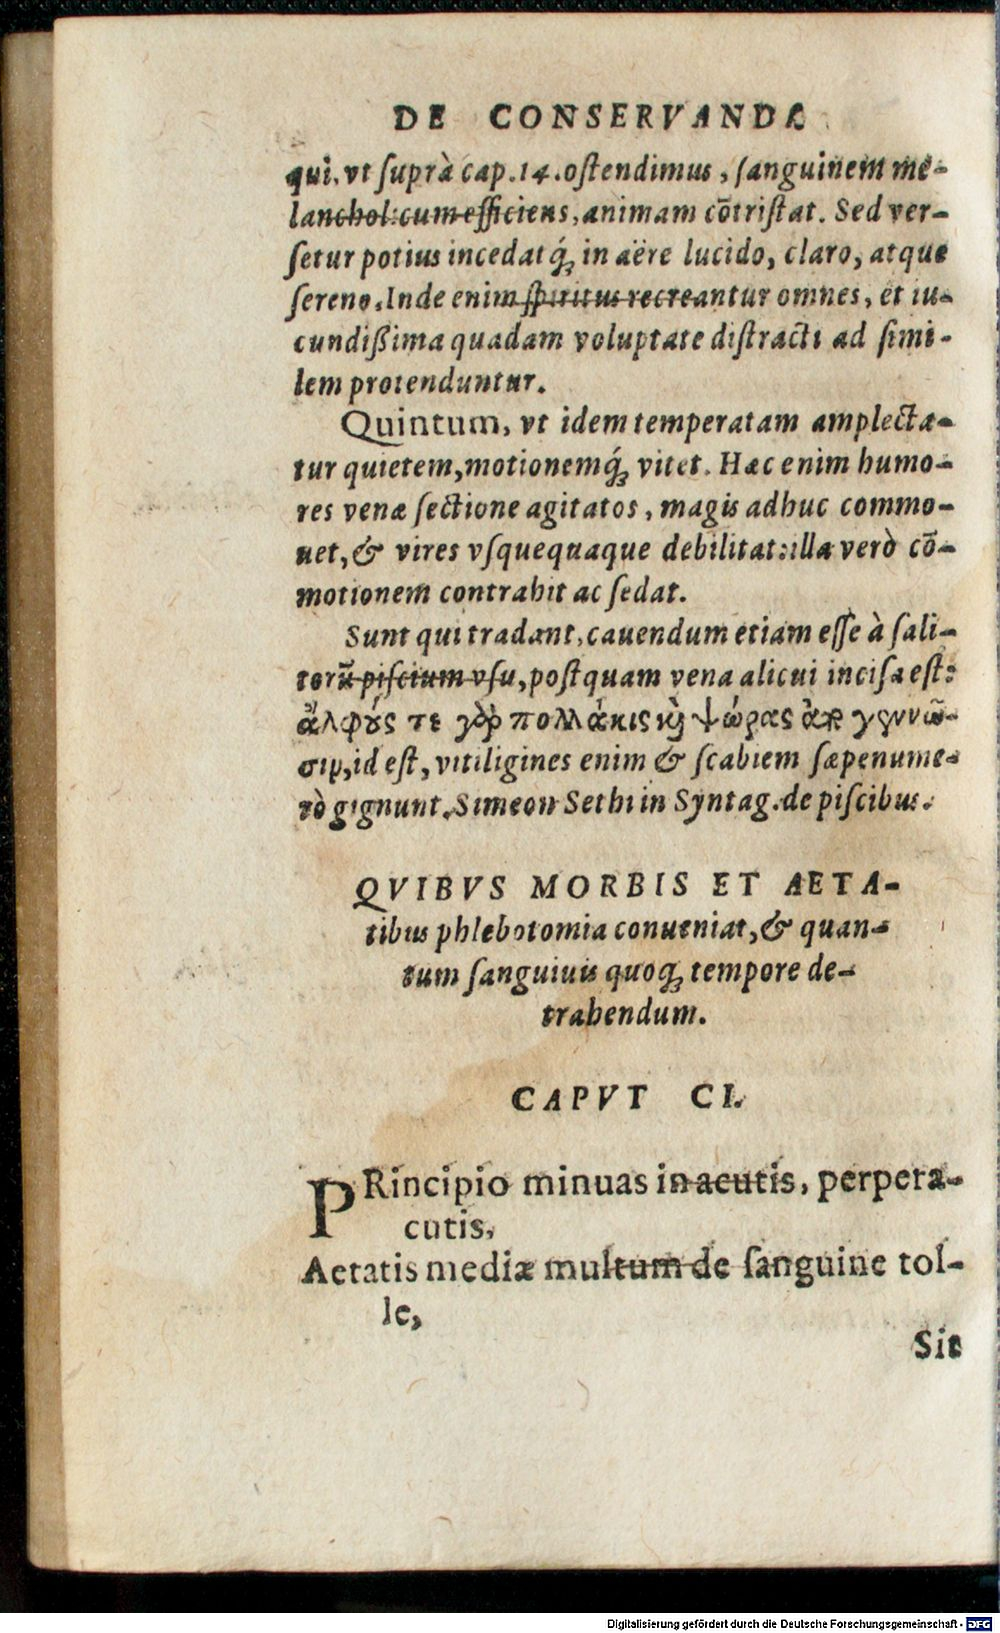 DE CONSERVANDA
qui, vt ſuprà cap. 14. oſtendimus, ſanguinem me-
lancholicum efficiens, animam cōtriſtat. Sed ver-
ſetur potius incedatq́; in aëre lucido, claro, atque
ſereno. Inde enim ſpiritus recreantur omnes, et iu-
cundißima quadam voluptate diſtracti ad ſimi-
lem protenduntur.
Quintum, vt idem temperatam amplecta-
tur quietem, motionemq́; vitet. Hæc enim humo-
res venæ ſectione agitatos, magis adhuc commo-
uet, & vires vſquequaque debilitat: illa verò cō-
motionem contrahit ac ſedat.
Sunt qui tradant, cauendum etiam eſſe à ſali-
torū piſcium vſu, poſtquam vena alicui inciſa eſt:
ἄλφούς τε γὸρ πολλάκις κὴ ψώρας ἀπ γεννῶ-
σιν, id eſt, vitiligines enim & ſcabiem ſæpenume-
rò gignunt. Simeon Sethi in Syntag. de piſcibus.
QVIBVS MORBIS ET AETA-
tibus phlebotomia conueniat, & quan-
tum ſanguiuis quoq; tempore de-
trahendum.
CAPVT CI.
PRincipio minuas in acutis, perpera-
cutis,
Aetatis mediæ multum de ſanguine tol-
le,
Sit
Digitalisierung gefördert durch die Deutsche Forschungsgemeinschaft - DFG